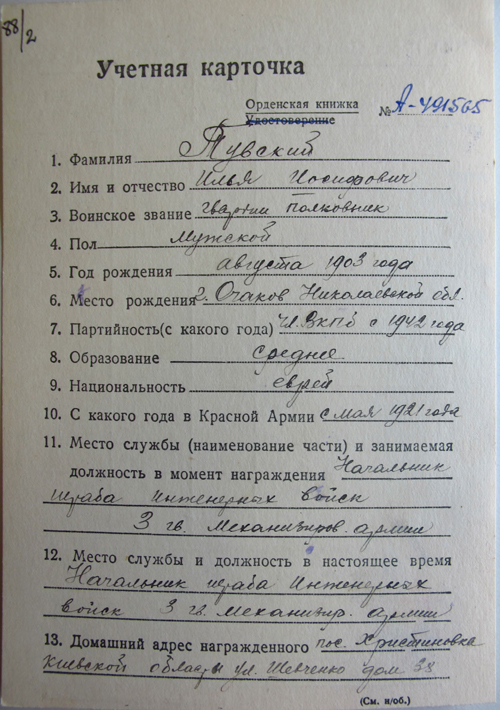 88/2
Учетная карточка
Орденская книжка
Удостоверение
№ А-491565
1. Фамилия Тувский
2. Имя и отчество Илья Иосифович
3. Воинское звание гвардии полковник
4. Пол Мужской
5. Год рождения августа 1903 года
6. Место рождения г. Очаков Николаевской обл.
7. Партийность(с какого года) чл. ВКПб с 1942 года
8. Образование среднее
9. Национальность еврей
10. С какого года в Красной Армии с мая 1921 года
11. Место службы (наименование части) и занимаемая
должность в момент награждения Начальник
штаба инженерных войск
3 гв. механизиров. армии
12. Место службы и должность в настоящее время
Начальник штаба инженерных
войск 3 гв. механизир. армии
13. Домашний адрес награжденного пос. Христиновка
Киевской области ул. Шевченко дом 38
(См. н/об.)